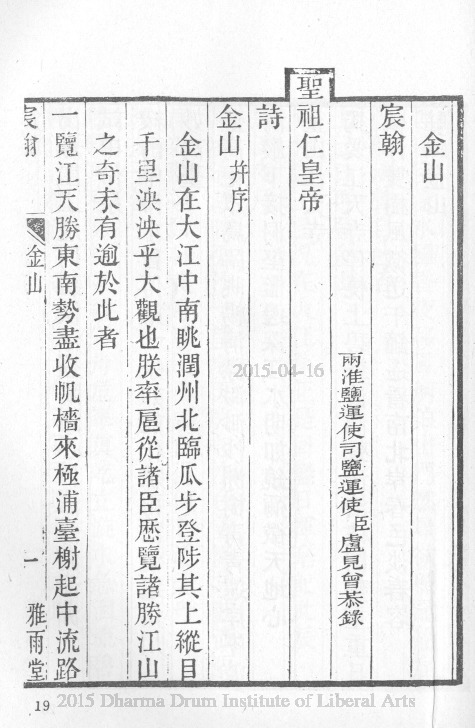 金山
宸翰
兩淮鹽運使司鹽運使臣盧見曾恭錄
聖祖仁皇帝
詩
金山并序
金山在大江中南眺潤州北臨瓜步登陟其上縱目
千里泱泱乎大觀也朕率扈從諸臣歷覽諸勝江山
之奇未有逾於此者
一覽江天勝東南勢盡收帆檣來極浦臺榭起中流路
宸翰
金山
一
雅雨堂
2015-04-16
19
2015 Dharma Drum Institute of Liberal Arts